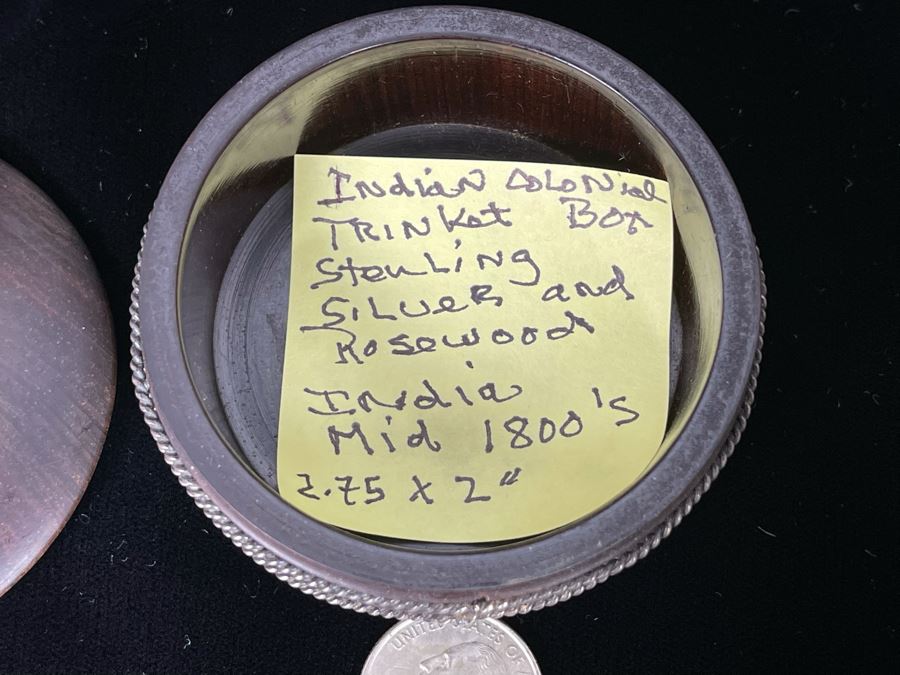 Indian Colonial
Trinket Box
Sterling
Silver and
Rosewood
India
Mid 1800's
2.75 x 2"
UNITED STATES OF